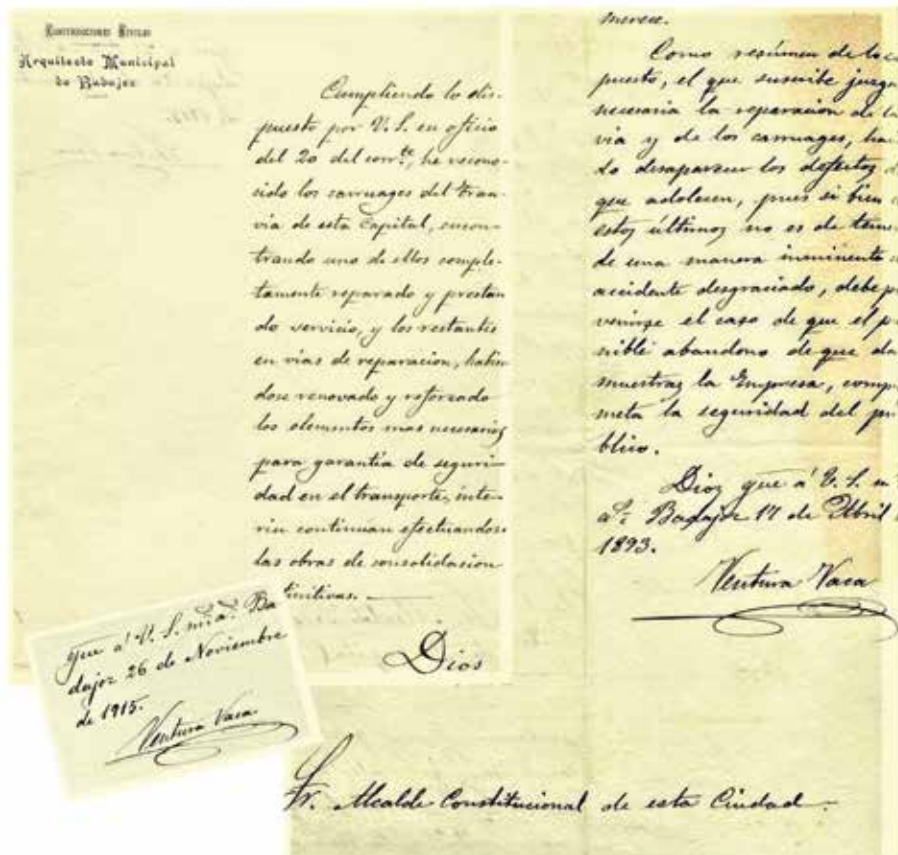 CONSTRUCCIONES CIVILES
Arquitecto Municipal
de Badajoz
Cumpliendo lo dis-
puesto por V. S. en oficio
del 20 del corrte, he recono-
cido los carruages del tran-
via de esta Capital, encon-
trando uno de ellos comple-
tamente reparado y prestan
do servicio, y los restantes
en vias de reparacion, habien
dose renovado y reforzado
los elementos mas necesarios
para garantia de seguri-
dad en el transporte, inte-
rin continuan efectuandose
las obras de consolidacion
finitivas.
Dios
gue a' V. S. m. a. Ba
dajoz 26 de Noviembre
de 1915.
Ventura Vaca
merece.
Como resúmen de lo
puesto, el que suscribe juzga
necesaria la reparacion de la
via y de los carruages, hac
do desaparecer los defectos d
que adolecen, pues si bien
estos últimos no es de teme
de una manera inminente
accidente desgraciado, debe p
venirse el caso de que el p
sible abandono de que da
muestras la Empresa, comp
meta la seguridad del pú
blico.
Dios gue á V. S. m
as. Badajoz 17 de Abril
1893.
Ventura Vaca
Sr. Alcalde Constitucional de esta Ciudad.